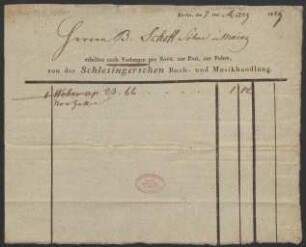 Berlin, den 7 ten März 18
Herrn B. Schott Söhne Mainz
erhalten nach Verlangen pro Novit. zur Post, zur Fuhre,
von der Schlesingerschen Buch- und Musikhandlung.
1 Weber op. 23. 66 1 12